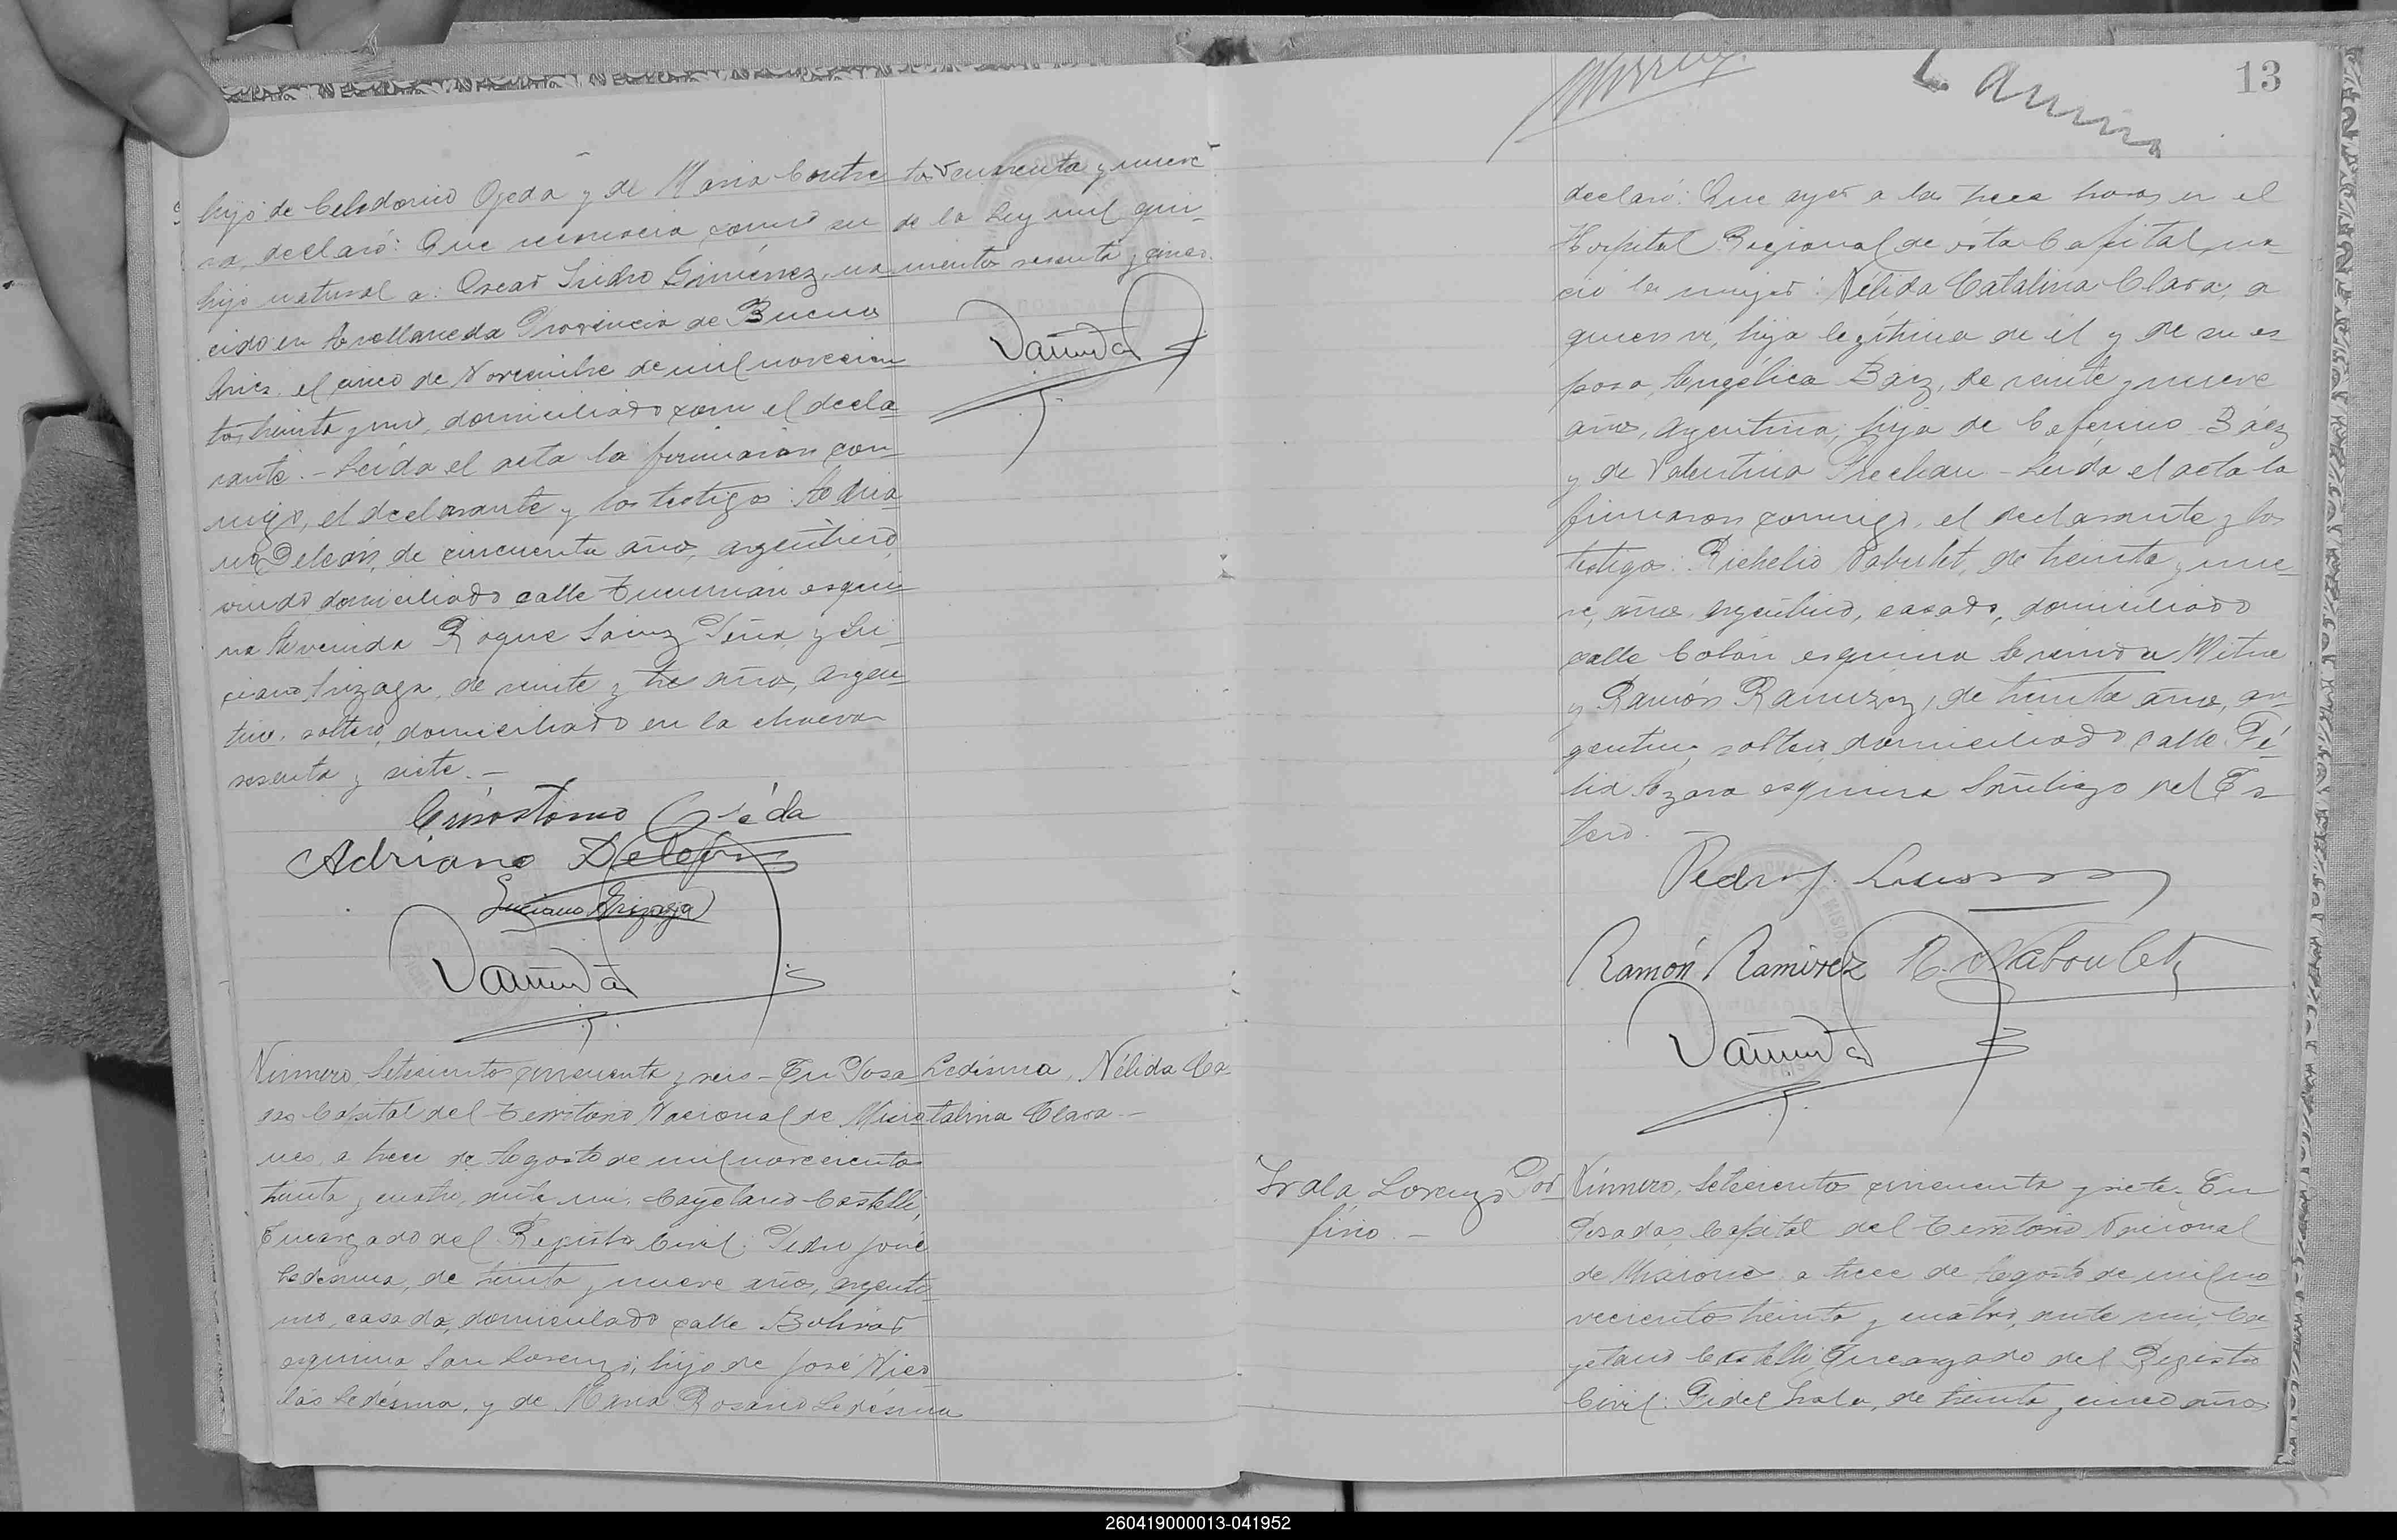 hijo de Celedonio Ojeda y de Maria Contre
ra, declaró: Que reconocia como su
hijo natural a: Oscar Isidro Giménez, na
cido en Avellaneda Provincia de Buenos
Aires, el cinco de Noviembre de mil novecien
tos treinta y uno, domiciliado con el decla
rante. - Leida el acta la firmaron con
migo, el declarante y los testigos: Adria
no Deleón, de cincuenta años, argentino,
viudo, domiciliado calle Tucumán esqui
na Avenida Roque Saenz Peña, y Lu
ciano Arizaga, de veinte y tres años, argen
tino, soltero, domiciliado en la chacra
sesenta y siete. -
tos cuarenta y nueve
de la Ley mil qui-
nientos sesenta y cinco.
Crisóstomo Ojéda
Adriano Deleón
Luciano Arizaga
Número, Setecientos cincuenta y seis - En Posa
das Capital del Territorio Nacional de Misio
nes, a trece de Agosto de mil novecientos
treinta y cuatro, ante mi, Cayetano Castelli,
Encargado del Registro Civil: Pedro José
Ledesma, de treinta y nueve años, argenti
no, casado, domiciliado calle Bolivar
esquina San Lorenzo, hijo de José Nico
lás Ledésma, y de Maria Rosario Ledésma
Ledésma, Nélida Ca-
talina Clara -
13
declaró: Que ayer a las trece horas en el
Hospital Regional de ésta Capital, na-
ció la mujer: Nélida Catalina Clara, a
quien vi, hija legítima de él y de su es
posa, Angélica Báez, de veinte y nueve
años, argentina, hija de Ceferino Báez
y de Valentina - Leida el acta la
firmaron conmigo, el declarante y los
testigos: Richelio Naboulet, de treinta y nue-
ve, años, argentino, casado, domiciliado
calle Colón esquina Avenida Mitre
y Ramón Ramírez, de treinta años, ar
gentino, soltero, domiciliado calle Fé-
lix Azara esquina Santiago del Es
tero.
Pedro J. Ledesma
Ramón Ramirez R. Naboulet
Irala Lorenzo Por
firio. -
Número, Setecientos cincuenta y siete. En
Posadas, Capital del Territorio Nacional
de Misiones, a trece de Agosto de mil no
vecientos treinta y cuatro, ante mi, Ca
yetano Castelli, Encargado del Registro
Civil: Fidel Irala, de treinta y cinco años
260419000013-041952